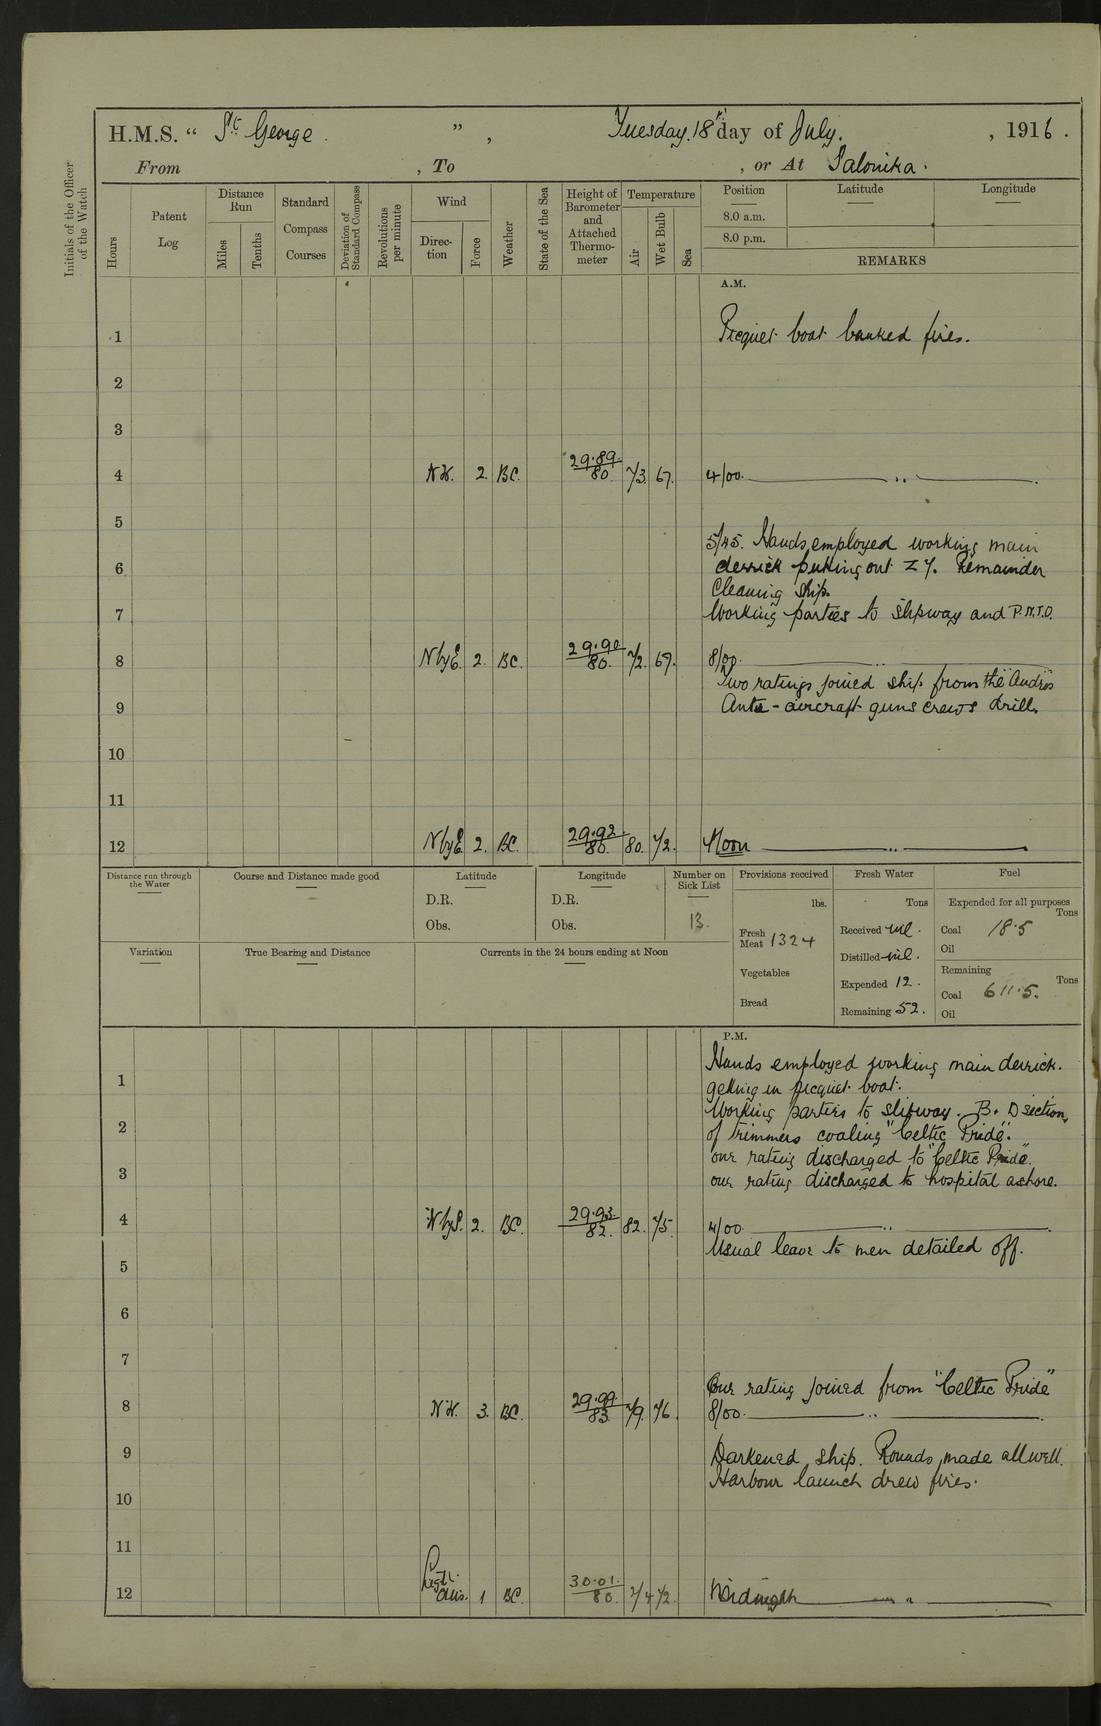 H.M.S. " St. George. ", Tuesday. 18th day of July. , 1916.
From , To , or At Salonika.
Initials of the Officer of the Watch
Hours
Patent Log
Distance Run
Miles
Tenths
Standard Compass Courses
Deviation of Standard Compass
Revolutions per minute
Wind
Direction
Force
Weather
State of the Sea
Height of Barometer and Attached Thermometer
Temperature
Air
Wet Bulb
Sea
Position Latitude Longitude
8.0 a.m.
8.0 p.m.
REMARKS
A.M.
1 Picquet boat banked fires.
2
3
4 NW. 2. BC. 29.89. 80. 73. 67. 4/00. ,, .
5
5/45. Hands employed working main
6 derrick putting out Remainder
Cleaning ship.
7 Working parties to slipway and P.N.T.O.
8 N by E. 2. BC. 29.90 80. 72. 67. 8/00. ,,
Two ratings joined ship from the "Andros"
9 Anti-aircraft guns crews drill.
10
11
12 N by E 2. BC. 29.92 80. 80. 72. Noon ,,
Distance run through the Water
Course and Distance made good
Latitude
D.R.
Obs.
Longitude
D.R.
Obs.
Number on Sick List
13.
Provisions received
lbs.
Fresh Meat 1324
Vegetables
Bread
Fresh Water
Tons
Received nil.
Distilled nil.
Expended 12.
Remaining 52.
Fuel
Expended for all purposes
Tons
Coal 18.5
Oil
Remaining
Tons
Coal 611.5.
Oil
Variation
True Bearing and Distance
Currents in the 24 hours ending at Noon
P.M.
Hands employed working main derrick.
1 getting in picquet boat.
Working parties to slipway. B. D section,
2 of trimmers coaling "Celtic Pride".
one rating discharged to "Celtic Pride".
3 one rating discharged to hospital ashore.
4 W by S. 2. BC. 29.93. 82. 82. 75. 4/00 ,, .
Usual leave to men detailed off.
5
6
7
One rating joined from "Celtic Pride"
8 NW. 3. BC. 29.99 83. 79. 76. 8/00. ,, .
9 Darkened ship. Rounds made all well.
Harbour launch drew fires.
10
11
12 Light airs. 1 BC. 30.01. 80. 74 72. Midnight ,,